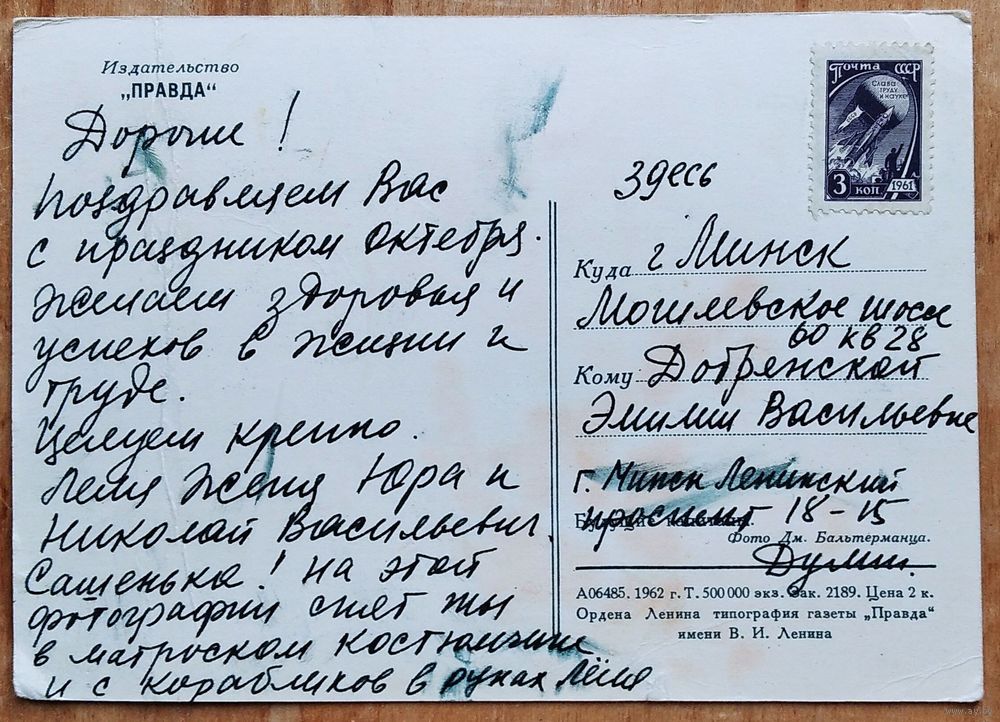 Издательство
„ПРАВДА“
Дорогие!
Поздравляем Вас
с праздником октября.
Желаем здоровья и
успехов в жизни и
труде.
Целуем крепко.
Леля Женя Юра и
Николай Васильевич.
Сашенька! на этой
фотографии снят ты
в матроском костюмчике
и с корабликов в руках Лёля
Почта СССР
Слава
труду
и науке
3 коп 1961
здесь
Куда г Минск
Могилевское шосе
60 кв 28
Кому Добренской
Эмилии Васильевне
г. Минск Ленинский
проспект 18-15
Фото Дм. Бальтерманца.
А06485. 1962 г. Т. 500 000 экз. Зак. 2189. Цена 2 к.
Ордена Ленина типография газеты „Правда“
имени В. И. Ленина
www.ay.by